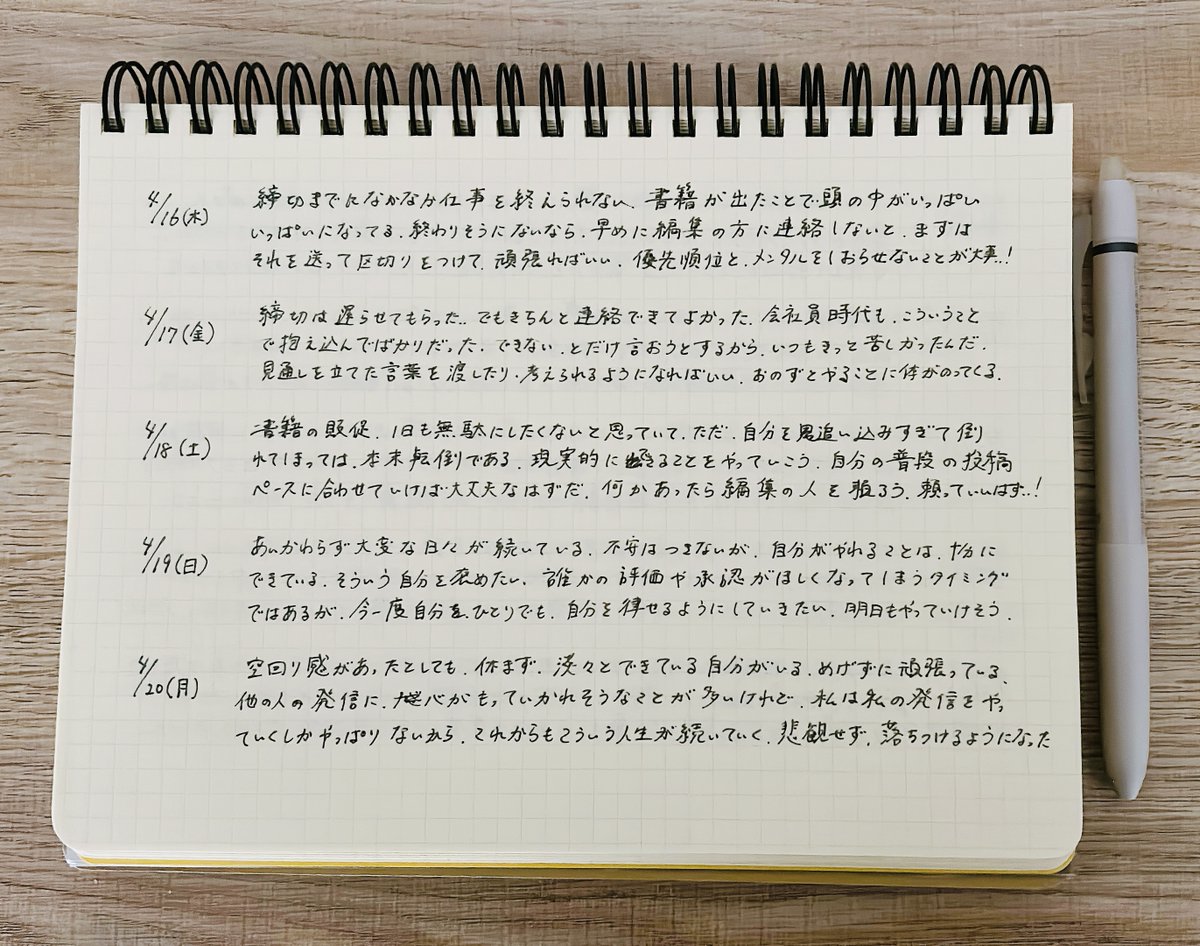 4/16(木)
締切までになかなか仕事を終えられない、書籍が出たことで頭の中がいっぱい
いっぱいになってる。終わりそうにないなら、早めに編集の方に連絡しないと。まずは
それを送って区切りをつけて、頑張ればいい。優先順位と、メンタルをしおらせないことが大事..!
4/17(金)
締切は遅らせてもらった.. でもきちんと連絡できてよかった。会社員時代も、こういうこと
で抱え込んでばかりだった。できない、とだけ言おうとするから、いつもきっと苦しかったんだ。
見通しを立てた言葉を渡したり、考えられるようになればいい。おのずとやることに体がのってくる。
4/18(土)
書籍の販促、1日も無駄にしたくないと思っていて、ただ、自分を追い込みすぎて倒
れてしまっては、本末転倒である。現実的にできることをやっていこう。自分の普段の投稿
ペースに合わせていけば大丈夫なはずだ。何かあったら編集の人を頼ろう。頼っていいはず..!
4/19(日)
あいかわらず大変な日々が続いている。不安はつきないが、自分がやれることは、十分に
できている。そういう自分を褒めたい。誰かの評価や承認がほしくなってしまうタイミング
ではあるが、今一度自分を、ひとりでも、自分を律せるようにしていきたい。明日もやっていけそう。
4/20(月)
空回り感があったとしても、休まず、淡々とできている自分がいる。めげずに頑張っている。
他の人の発信に、心がもっていかれそうなことが多いけれど、私は私の発信をやっ
ていくしかやっぱりないから。これからもこういう人生が続いていく。悲観せず、落ちつけるようになった